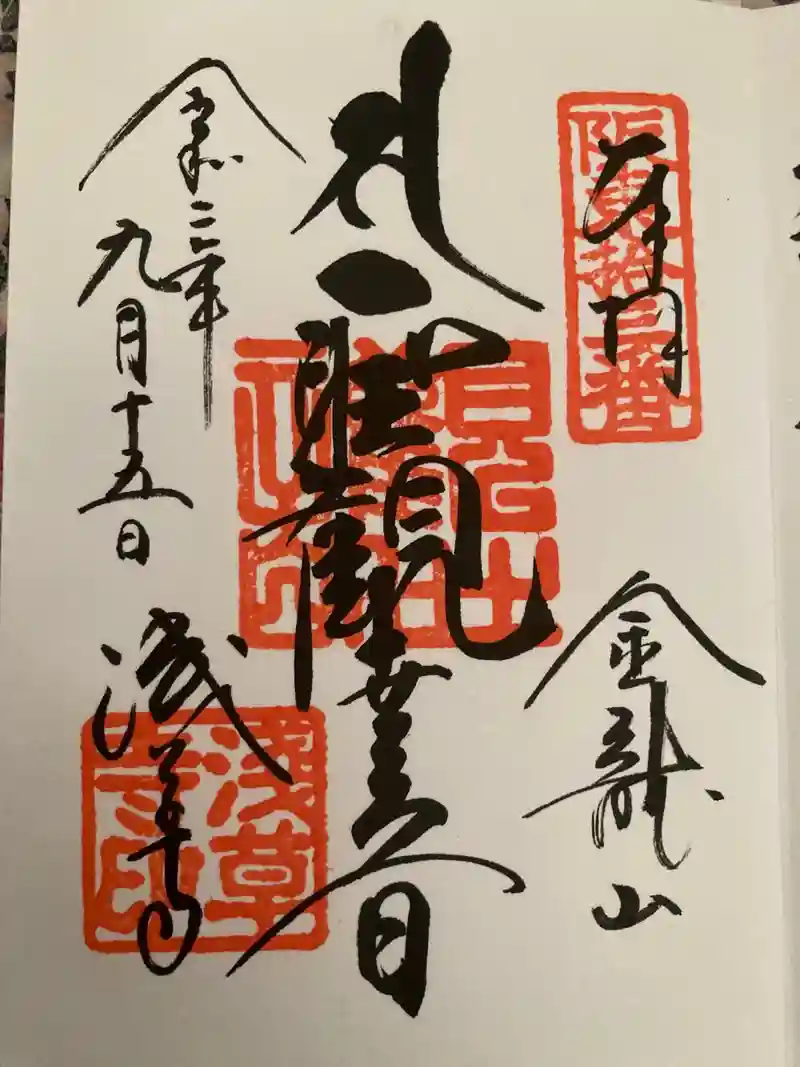 奉拝
阪東拾三番
金龍山
聖觀世音
令和二年
九月十五日
浅草寺
淺草
寺印